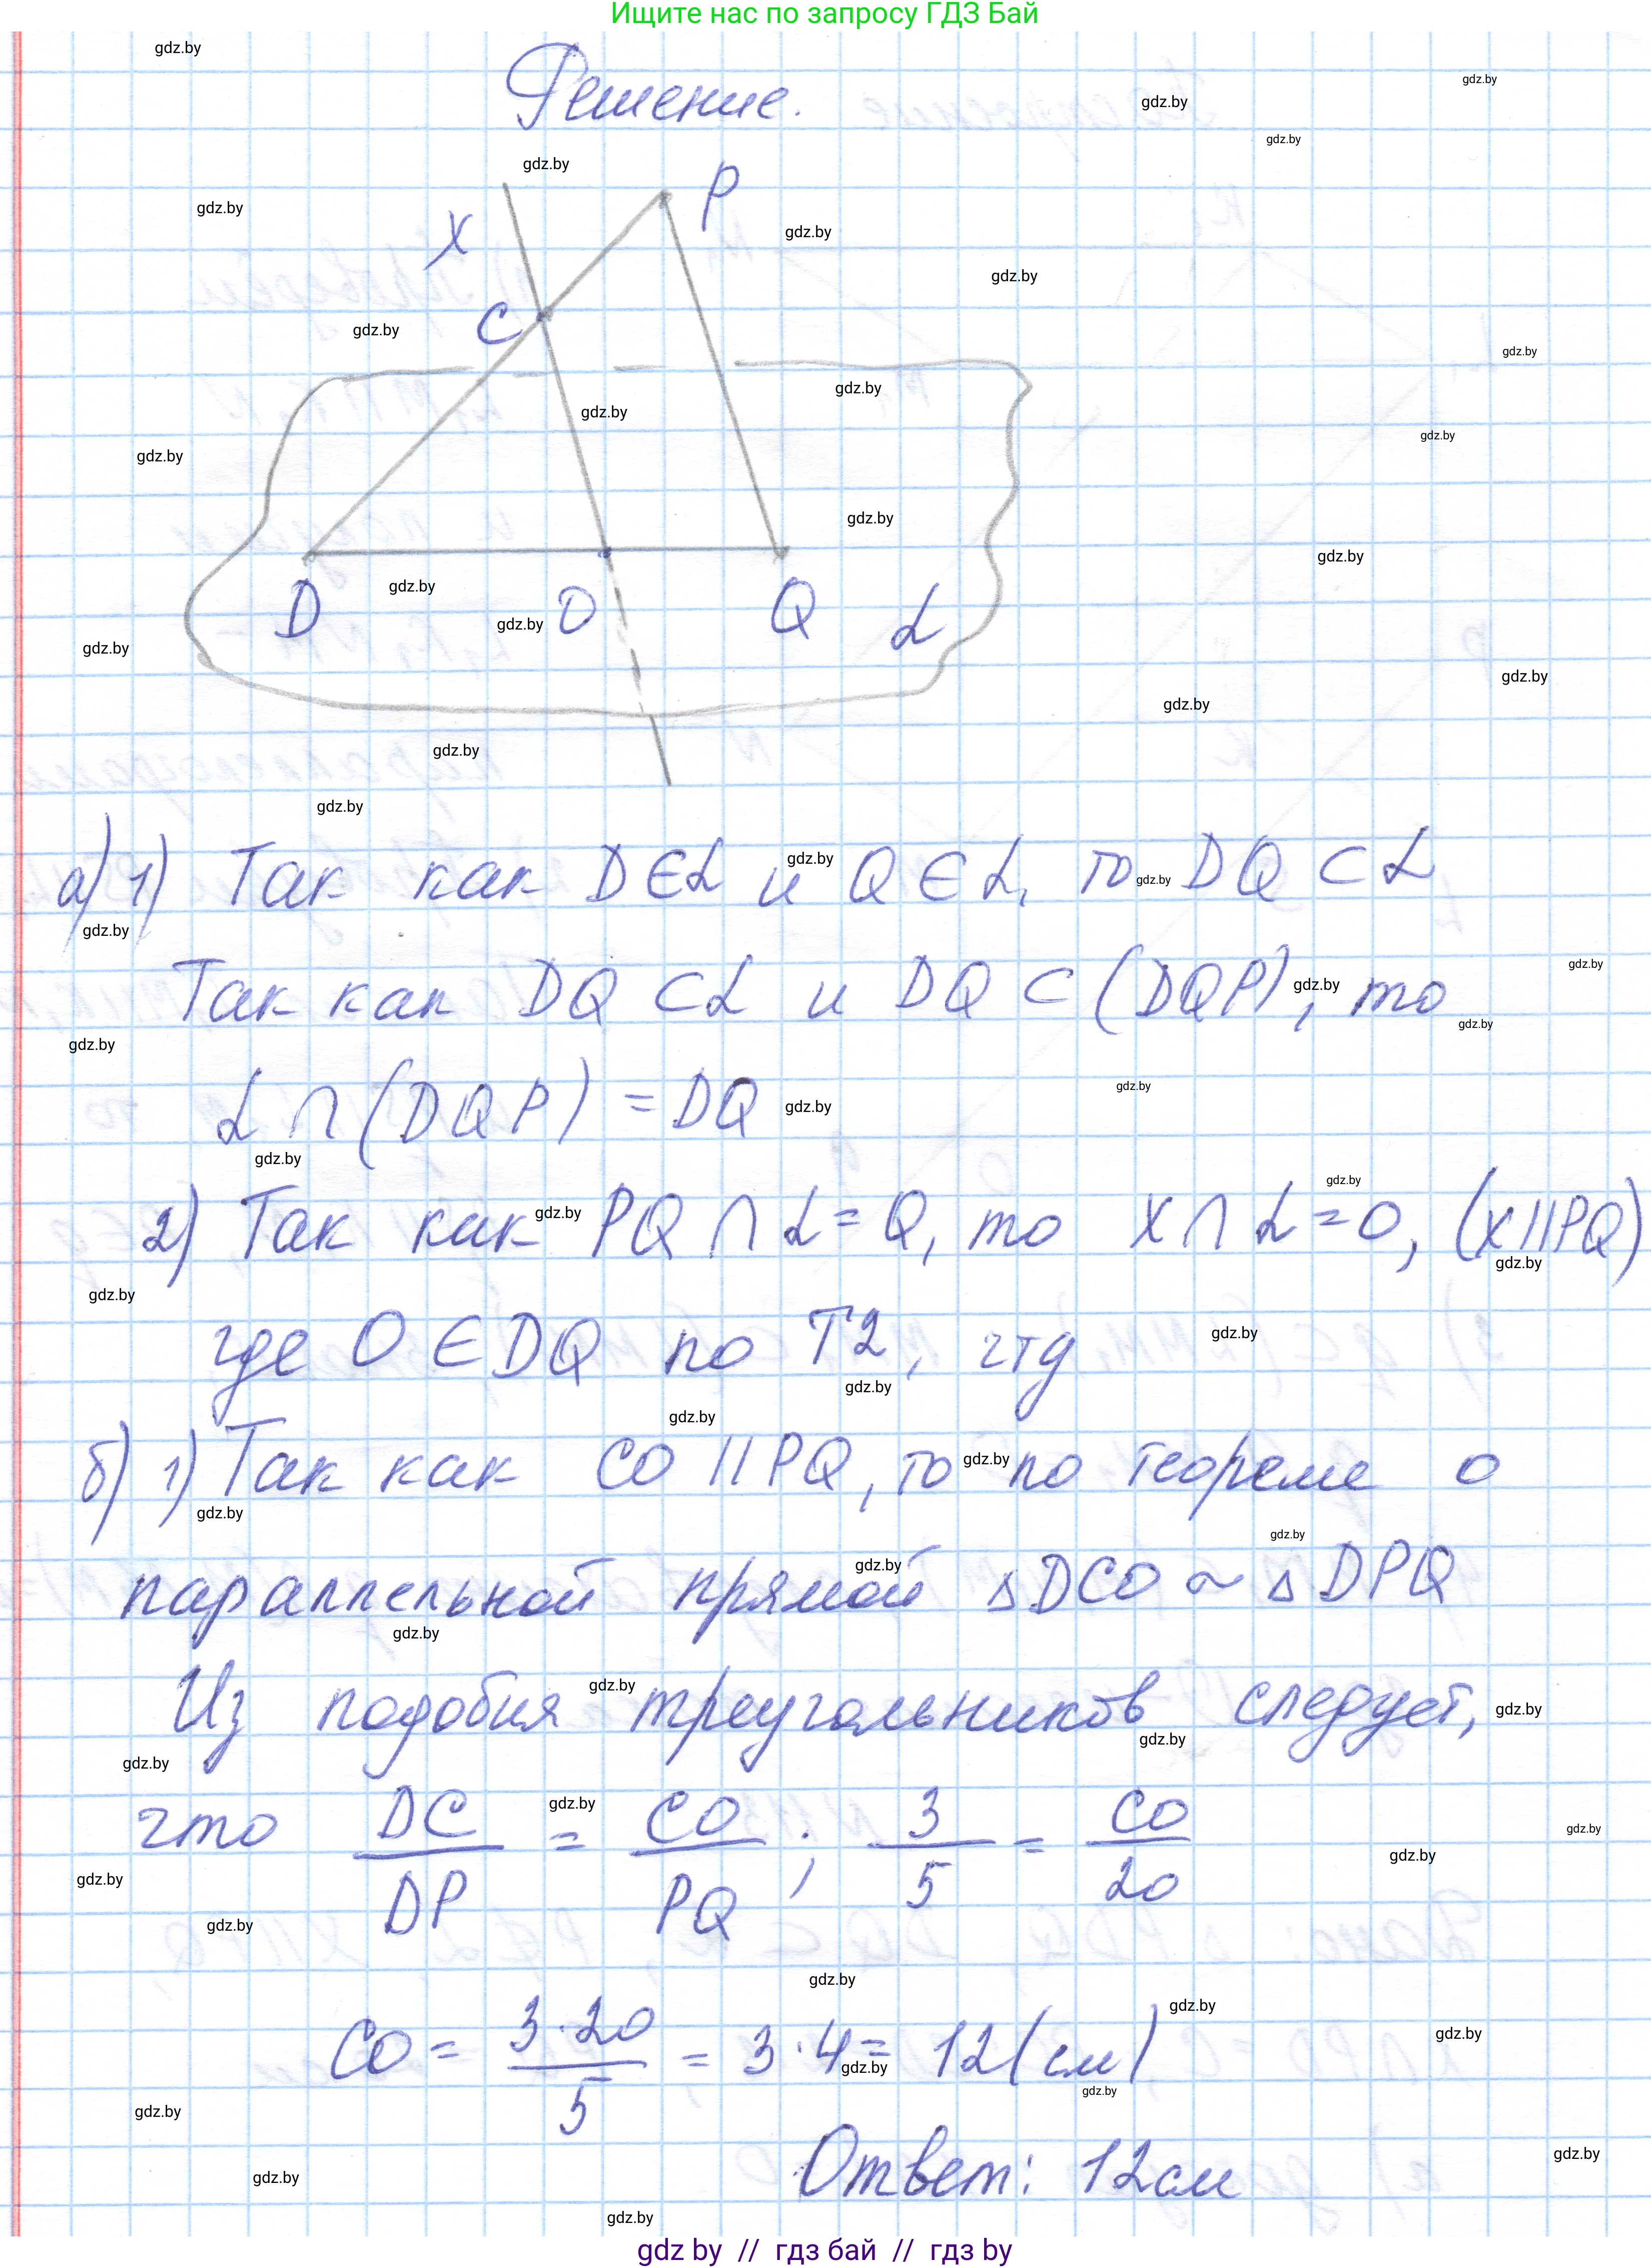 Ищите нас по запросу ГДЗ Бай
Решение.
P
x
C
D
O
Q
α
а) 1) Так как D ∈ α и Q ∈ α, то DQ ⊂ α
Так как DQ ⊂ α и DQ ⊂ (DQP), то
α ∩ (DQP) = DQ
2) Так как PQ ∩ α = Q, то x ∩ α = O, (x || PQ)
где O ∈ DQ по Т2, чтд
б) 1) Так как CO || PQ, то по теореме о
параллельной прямой △DCO ~ △DPQ
Из подобия треугольников следует,
что DC/DP = CO/PQ ; 3/5 = CO/20
CO = 3·20/5 = 3·4 = 12 (см)
Ответ: 12см
gdz by // гдз бай // гдз by